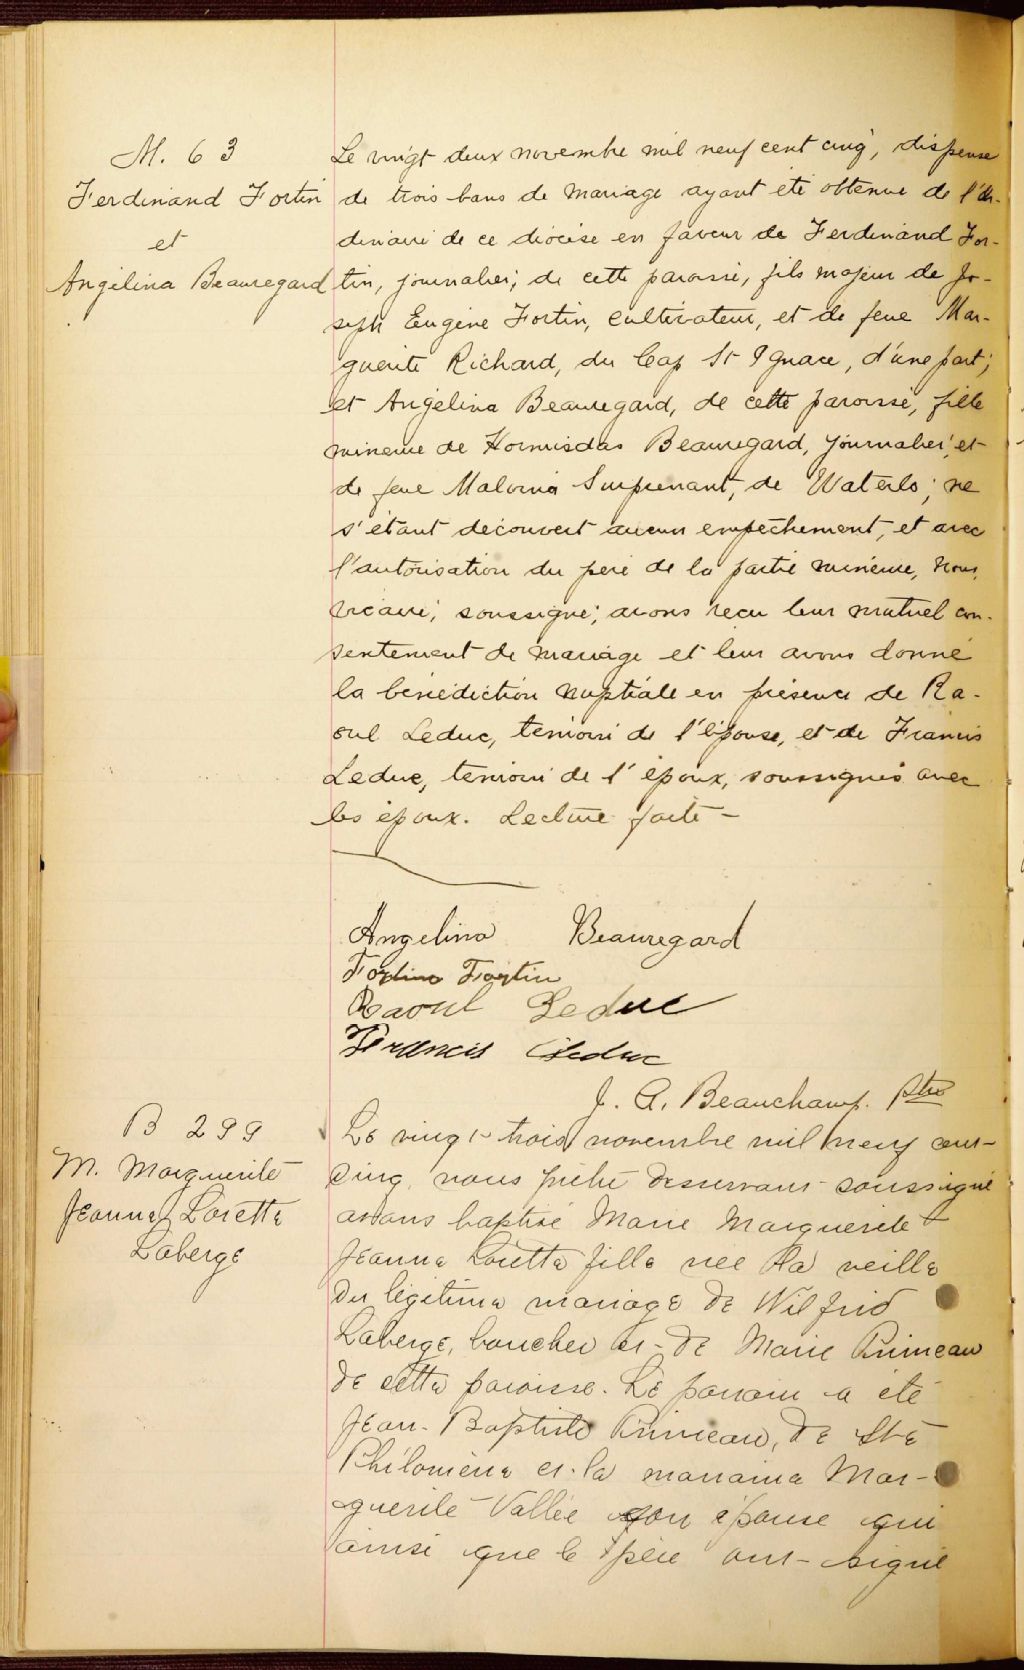 M. 63
Ferdinand Fortin
et
Angélina Beauregard
Le vingt deux novembre mil neuf cent cinq, dispense
de trois bans de mariage ayant été obtenue de l'Or-
dinaire de ce diocèse en faveur de Ferdinand For-
tin, journalier, de cette paroisse, fils majeur de Jo-
seph Eugène Fortin, cultivateur, et de feue Mar-
guerite Richard, du Cap St Ignace, d'une part;
et Angélina Beauregard, de cette paroisse, fille
mineure de Hormisdas Beauregard, journalier, et
de feue Malvina Surprenant, de Waterlo; ne
s'étant découvert aucun empêchement, et avec
l'autorisation du père de la partie mineure, nous,
vicaire, soussigné, avons reçu leur mutuel con-
sentement de mariage et leur avons donné
la bénédiction nuptiale en présence de Ra-
oul Leduc, témoin de l'épouse, et de Francis
Leduc, témoin de l'époux, soussignés avec
les époux. Lecture faite -
Angelina Beauregard
Fortin
Raoul Leduc
Francis Leduc
J. A. Beauchamp. Ptre
B 299
M. Marguerite
Jeanne Loretta
Laberge
Le vingt-trois novembre mil neuf cent
cinq, nous prêtre desservant soussigné
avons baptisé Marie Marguerite
Jeanne Loretta fille née la veille
du légitime mariage de Wilfrid
Laberge, boucher et de Marie Primeau
de cette paroisse. Le parrain a été
Jean-Baptiste Primeau, de Ste
Philomène et la marraine Mar-
guerite Vallée son épouse qui
ainsi que le père ont signé